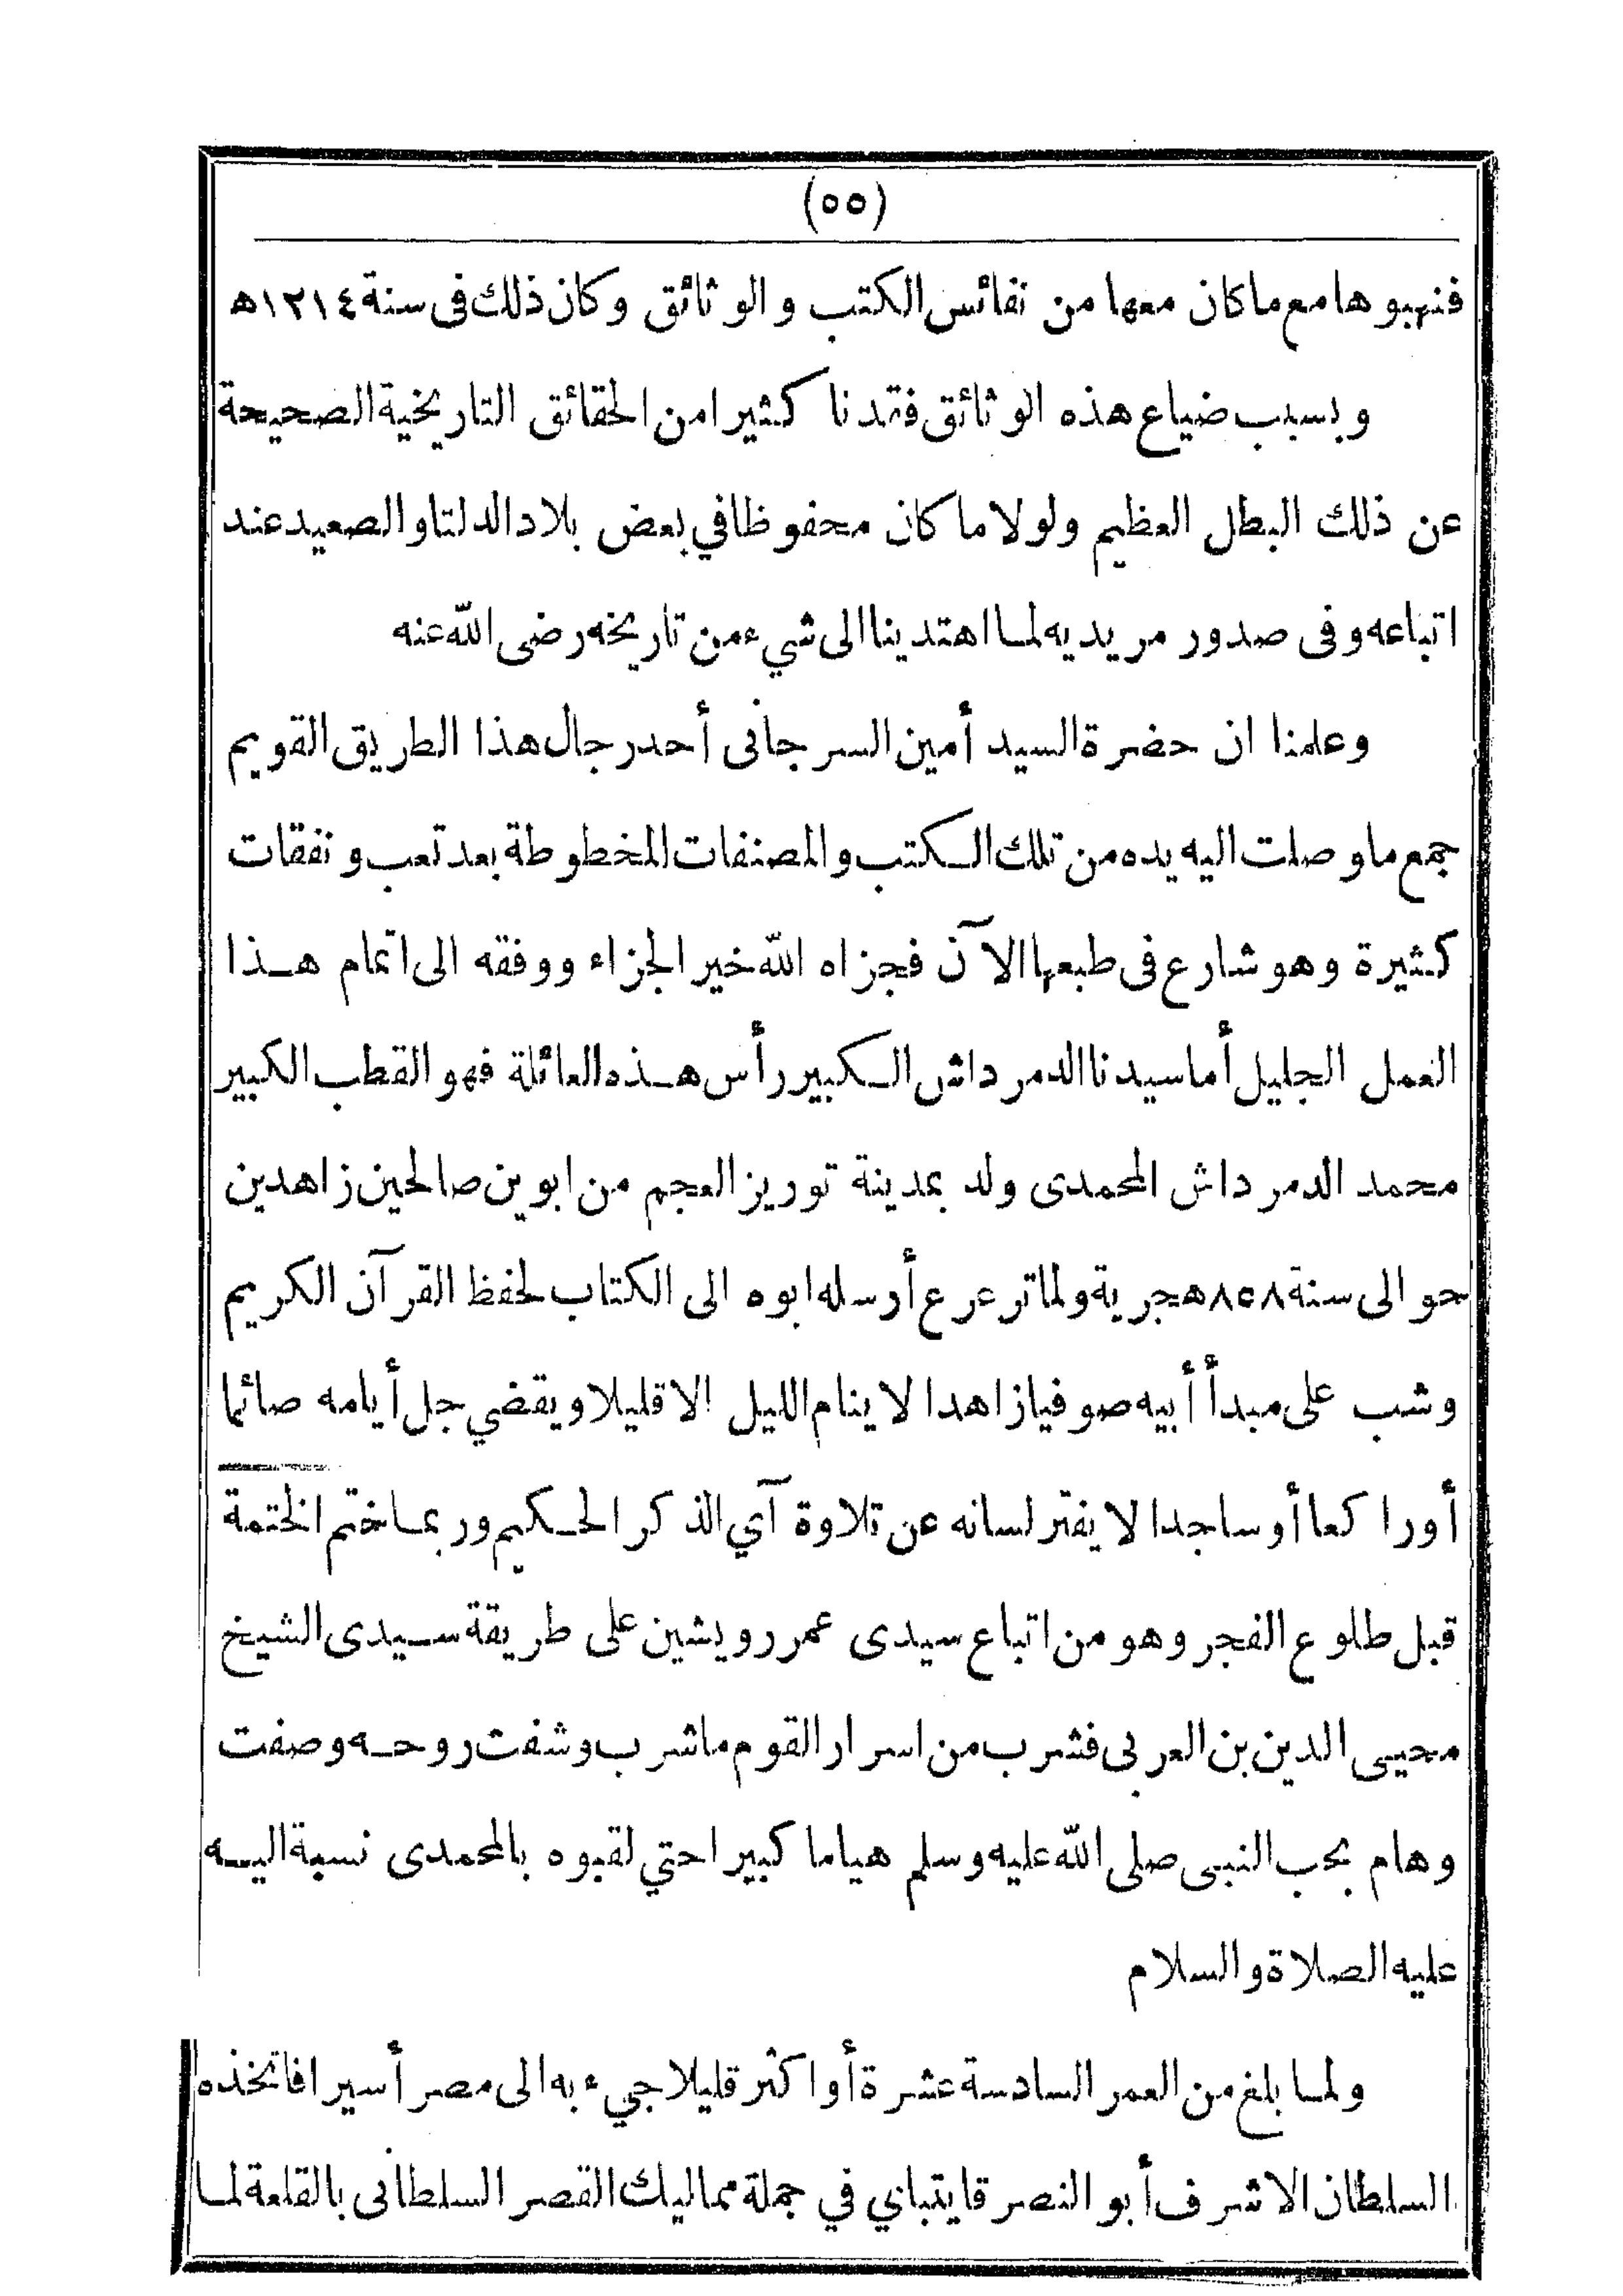 (٥٥)
فنهبوها مع ما كان معها من نفائس الكتب والوثائق وكان ذلك فى سنة ١٢١٤ه
وبسبب ضياع هذه الوثائق فقدنا كثيرا من الحقائق التاريخية الصحيحة
عن ذلك البطل العظيم ولولا ما كان محفوظا في بعض بلاد الدلتا والصعيد عند
اتباعه وفى صدور مريديه لما اهتدينا الى شيء من تاريخه رضى الله عنه
وعلمنا ان حضرة السيد أمين السرجانى أحد رجال هذا الطريق القويم
جمع ما وصلت اليه يده من تلك الكتب والمصنفات المخطوطة بعد تعب ونفقات
كثيرة وهو شارع فى طبعها الآن فجزاه الله خير الجزاء ووفقه الى اتمام هذا
العمل الجليل أما سيدنا الدمرداش الكبير رأس هذه العائلة فهو القطب الكبير
محمد الدمرداش المحمدى ولد بمدينة توريز العجم من ابوين صالحين زاهدين
حوالى سنة ٨٥٨ هجرية ولما ترعرع أرسله ابوه الى الكتاب لحفظ القرآن الكريم
وشب على مبدأ أبيه صوفيا زاهدا لا ينام الليل الا قليلا ويقضي جل أيامه صائما
أو راكعا أو ساجدا لا يفتر لسانه عن تلاوة آي الذكر الحكيم وربما ختم الختمة
قبل طلوع الفجر وهو من اتباع سيدى عمر رويشين على طريقة سيدى الشيخ
محيى الدين بن العربى فشرب من اسرار القوم ما شرب وشفت روحه وصفت
وهام بحب النبى صلى الله عليه وسلم هياما كبيرا حتي لقبوه بالمحمدى نسبة اليه
عليه الصلاة والسلام
ولما بلغ من العمر السادسة عشرة أو اكثر قليلا جيء به الى مصر أسيرا فاتخذه
السلطان الاشرف أبو النصر قايتباي في جملة مماليك القصر السلطانى بالقلعة لما